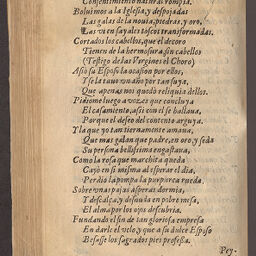 Consentimiento nas mas rompia.
Boluimos a la Iglesia, y despojadas
Las galas de la nouia, piedras, y oro,
Las vi en sayales toscos transformadas.
Cortados los cabellos, que el decoro
Tienen de la hermosura, sin cabellos
(Testigo de las Virgines el Choro)
Asio su Esposo la ocasion por ellos,
Y se la tuuo vn año por tan suya,
Que apenas nos quedò reliquia dellos.
Pidiome luego a vozes que concluya
El casamiento, assi con el se hallaua,
Porque el deseo del contento arguya.
Y la que yo tan tiernamente amaua,
Que mas galan que padre, en oro, y seda
Su persona bellissima engastaua,
Como la rosa que marchita queda
Cayò en si misma al esperar el dia,
Perdiò la pompa la purpurea rueda.
Sobre vnas pajas asperas dormia,
Y descalça, y desnuda en pobre mesa,
El alma por los ojos descubria.
Fundando el fin de tan gloriosa empresa
En darle el velo, y que a su dulce Esposo
Besasse los sagrados pies professa.
Pey-